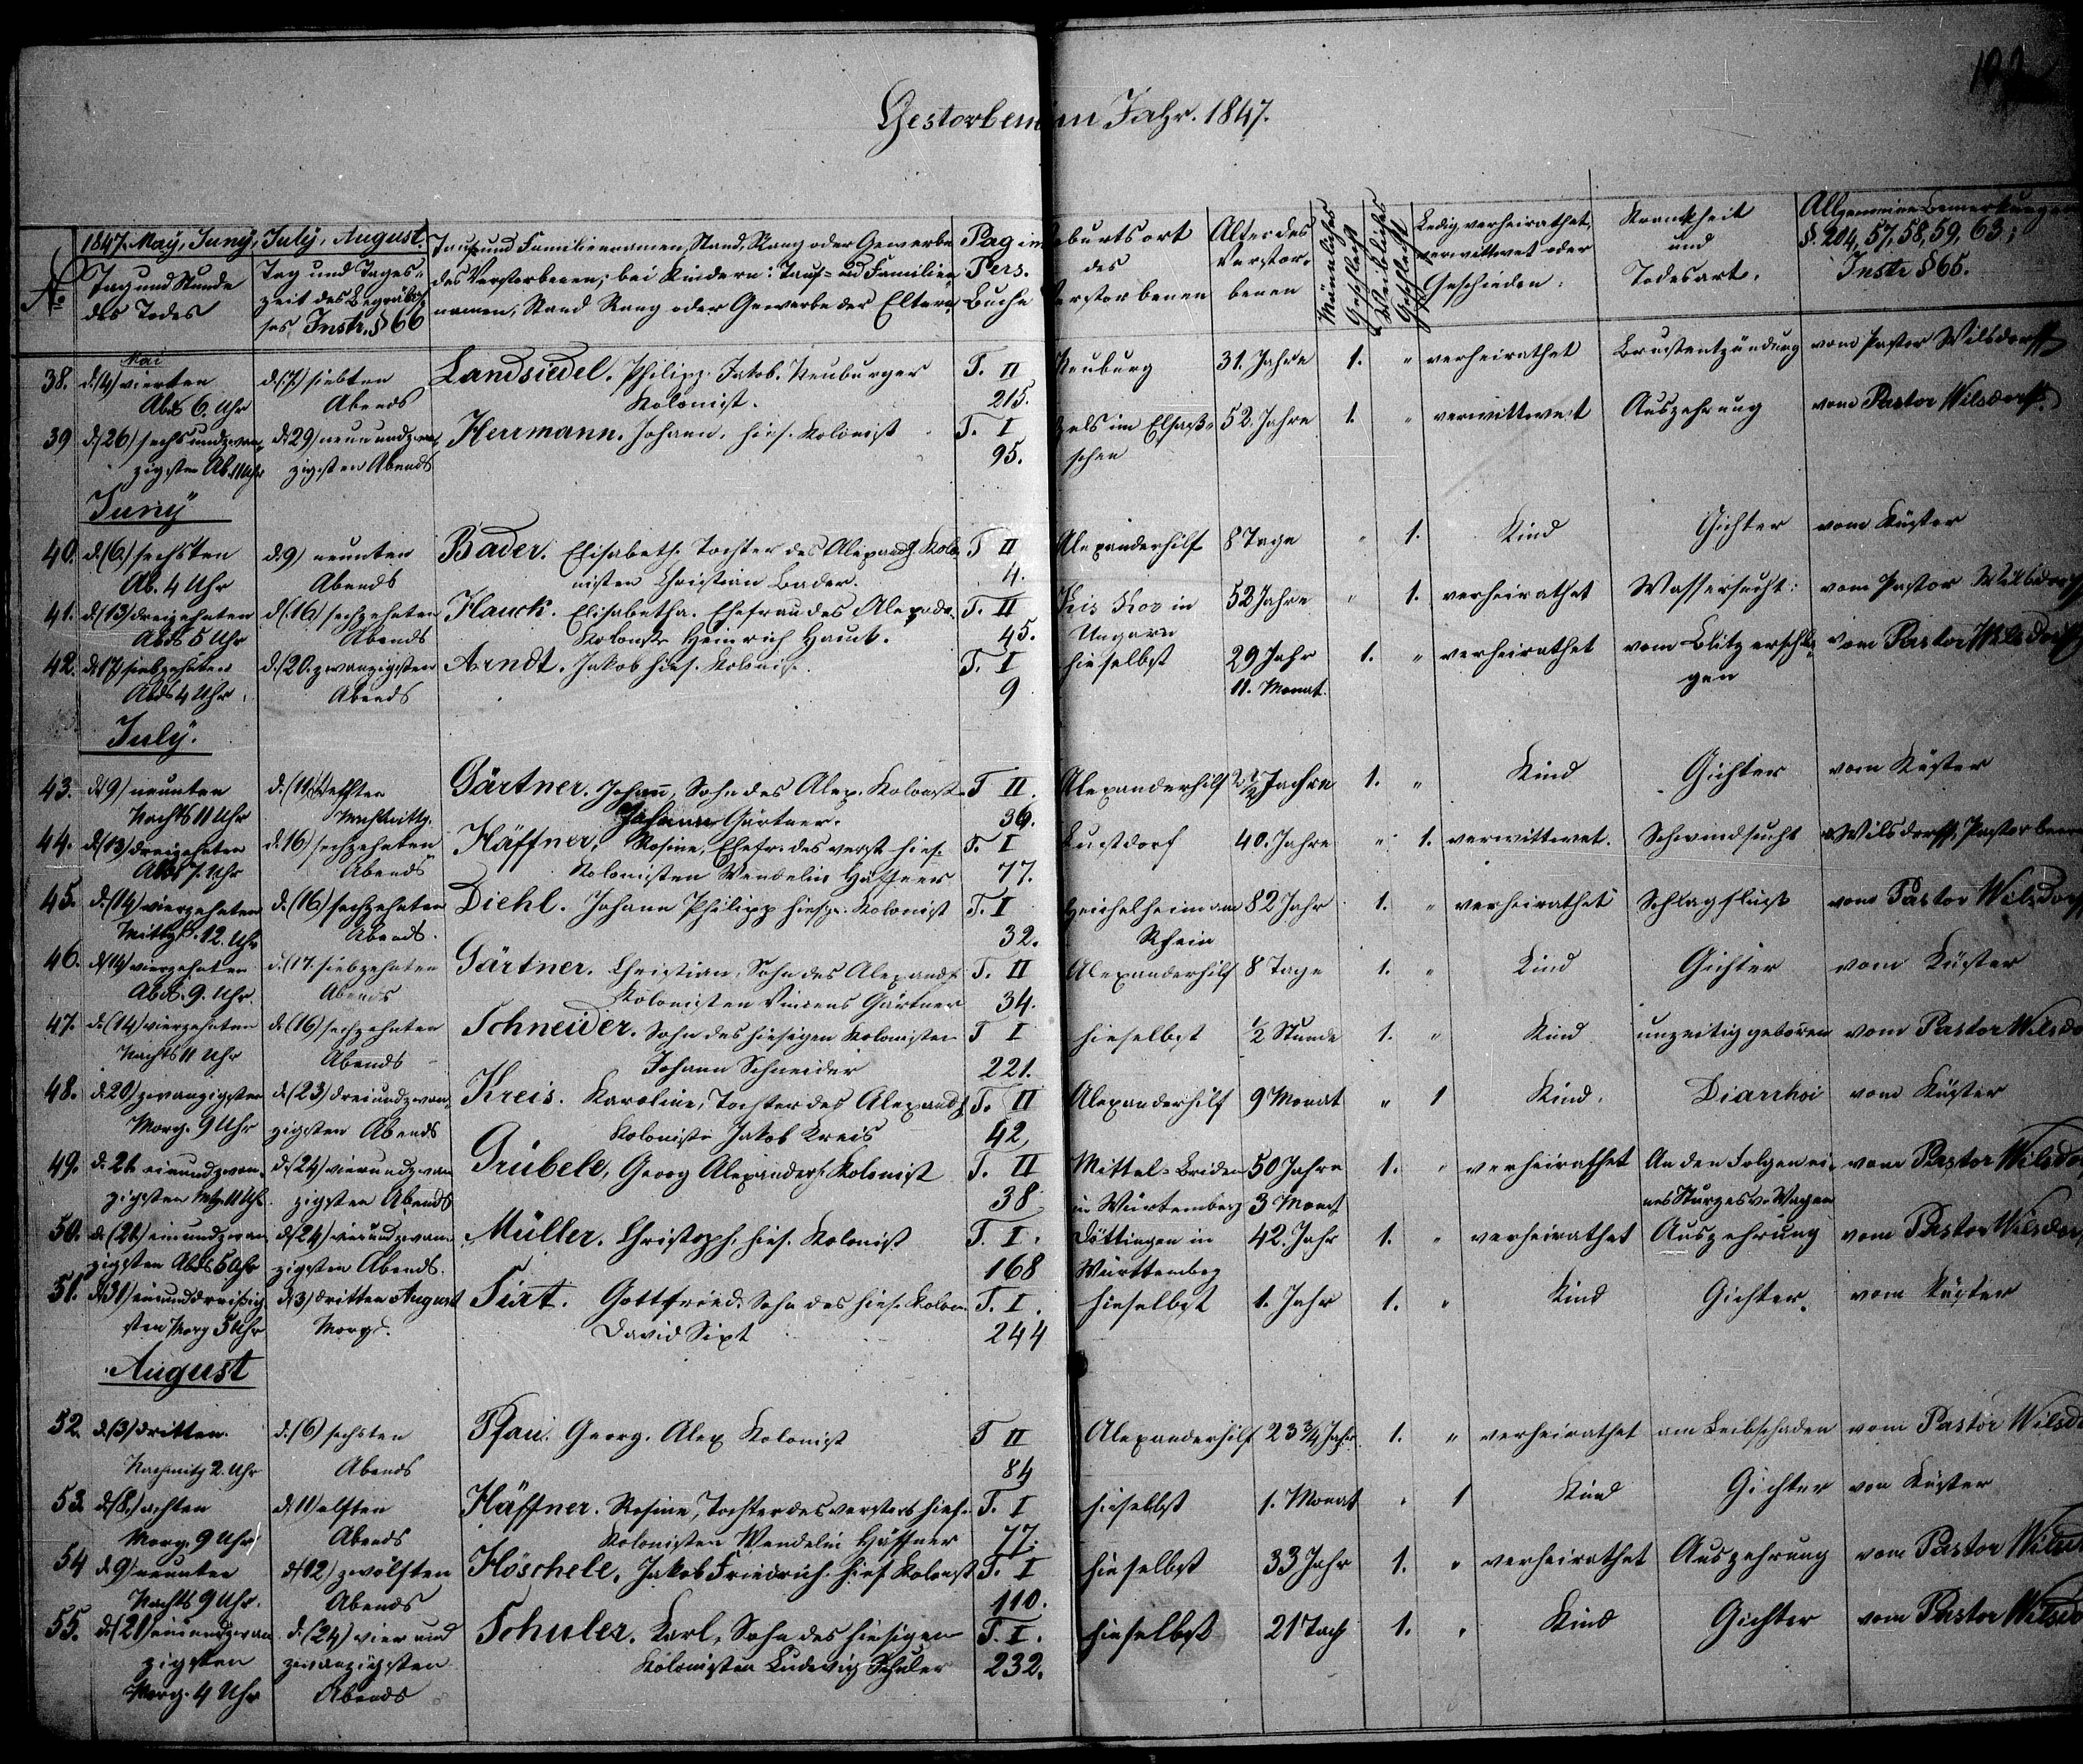 192
Gestorben im Jahr. 1847.
1847. May, Juny, July, August.
No
Tag und Stunde
des Todes
Tag und Tages-
zeit des Begräbnis-
ses Instr. § 66
Tauf und Familiennamen, Stand, Rang oder Gewerbe
des Verstorbenen; bei Kindern: Tauf- und Familien-
namen, Stand Rang oder Gewerbe der Eltern.
Pag im
Pers.
Buche
Geburtsort
des
Verstorbenen
Alter des
Verstor-
benen
Männliches
Geschlecht
Weibliches
Geschlecht
Ledig, verheirathet,
verwittwet oder
Geschieden.
Krankheit
und
Todesart.
Allgemeine Bemerkungen
§. 204, 57, 58, 59, 63;
Instr § 65.
Mai
38. d. (4) vierten d. (7) siebten Landsiedel. Philipp Jakob. Neuburger T. II Neuburg 31. Jahre 1. " verheirathet Brustentzündung vom Pastor Wilsdorff
Abds 6. Uhr Abends Kolonist. 215.
39 d. (26) sechsundzwan- d. 29) neunundzwan- Herrmann. Johann. hies. Kolonist T. I Selz im Elsaß- 52. Jahre 1. " verwittwet Auszehrung vom Pastor Wilsdorff.
zigsten Ab. 11 Uhr zigsten Abends 95. schen
Juny
40. d. (6) sechsten d. 9) neunten Bader. Elisabeth. Tochter des Alexandh. Kolo- T II Alexanderhilf 8 Tage " 1. Kind Gichter vom Küster
Ab. 4 Uhr Abends nisten Christian Bader. 4.
41. d. (13) dreizehnten d. (16) sechzehnten Hauck. Elisabetha. Ehefrau des Alexdr. T. II Kis Kov in 52 Jahre " 1. verheirathet Wassersucht: vom Pastor Wilsdorff
Abds 5 Uhr Abends Kolonist Heinrich Hauck. 45. Ungarn
42. d. 17) siebzehnten d. (20. zwanzigsten Arndt. Jakob hies. Kolonist. T. I hieselbst 29 Jahr 1. " verheirathet vom Blitz erschla- vom Pastor Wilsdorff
Abds 4 Uhr Abends 9 11. Monat. gen
July.
43. d. 9) neunten d. (11) elften Gärtner. Johann, Sohn des Alex. Kolonist T II. Alexanderhilf 2 1/2 Jahren 1. " Kind Gichter vom Küster
Nachts 11 Uhr Nachmittg. Johann Gärtner. 36.
44. d. (13) dreizehnten d. 16) sechzehnten Häffner, Rosine, Ehefr. des verst. hies. T. I Lustdorf 40. Jahre " 1. verwittwet. Schwindsucht Wilsdorff, Pastor
Abds 7. Uhr Abends Kolonisten Wendelin Häffner 77.
45. d. (14) vierzehnten d. (16) sechzehnten Diehl. Johann Philipp hiesger. Kolonist T. I Heichelheim am 82 Jahr 1. " verheirathet Schlagfluß vom Pastor Wilsdorff
Mittgs. 12. Uhr Abends. 32. Rhein
46. d. (14) vierzehnten d. (17. siebzehnten Gärtner. Christian, Sohn des Alexandh. T. II Alexanderhilf 8 Tage 1. " Kind Gichter vom Küster
Abds. 9. Uhr. Abends Kolonisten Vincens Gärtner 34.
47. d. (14) vierzehnten d. (16) sechzehnten Schneider. Sohn des hiesigen Kolonisten T I hieselbst 1/2 Stunde 1. " Kind unzeitig geboren vom Pastor Wilsdo
Nachts 11 Uhr Abends Johann Schneider 221.
48. d. 20) zwanzigsten d. (23) dreiundzwan- Kreis. Karoline, Tochter des Alexandh. T. II Alexanderhilf 9 Monat " 1 Kind. Diarrhoi vom Küster
Morg. 9 Uhr zigsten Abends Kolonist Jakob Kreis 42
49. d. 21 einundzwan- d. (24) vierundzwan Grübele, Georg Alexanderh. Kolonist T. II Mittel-Brüden 50 Jahre 1. " verheirathet An den Folgen ei- vom Pastor Wilsdo
zigsten 11 Uhr zigsten Abends 38 in Würtemberg 3 Monat nes Sturzes v. Wagen
50. d. (21) einundzwan d. (24) vierundzwan Müller. Christoph. hies. Kolonist T. I. Döttingen in 42. Jahr 1. " verheirathet Auszehrung vom Pastor Wilsdor
zigsten Abds 5 Uhr zigsten Abends. 168 Württemberg
51. d. 31) einunddreißig d. 3) dritten August Sixt. Gottfried. Sohn des hies. Kolon. T. I. hieselbst 1. Jahr 1. " Kind Gichter. vom Küster
sten Morg 5 Uhr Morgs. David Sixt 244
August
52. d. (3) dritten d. (6) sechsten Pfau. Georg. Alex Kolonist T II Alexanderhilf 23 3/4 Jahr 1. " verheirathet am Leibschaden vom Pastor Wilsd
Nachmitg 2. Uhr Abends 84
53. d. (8.) achten d. 11) elften Häffner. Rosine, Tochter des verstorb. hies. T. I hieselbst 1. Monat " 1 Kind Gichter von Küster
Morg. 9 Uhr Abends Kolonisten Wendelin Häffner 77.
54 d. 9) neunten d. (12) zwölften Höschele. Jakob Friedrich. hies Kolonist T. I hieselbst 33 Jahr 1. " verheirathet Auszehrung vom Pastor Wilsd
Nachts 9 Uhr. Abends 110.
55. d. (21) einundzwan d. (24) vier und Schuler. Karl, Sohn des hiesigen T. I. hieselbst 21 Tag 1. " Kind Gichter vom Pastor Wilsdo
zigsten zwanzigsten Kolonisten Ludewig Schuler 232.
Morg. 4 Uhr Abends